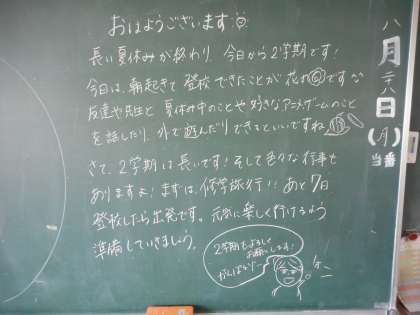 おはようございます
長い夏休みが終わり、今日から2学期です!
今日は、朝起きて登校できたことが花丸です
友達や先生と夏休み中のことや好きなアニメ、ゲームのこと
を話したり、外で遊んだりできるといいですね
さて、2学期は長いです!そして色々な行事も
ありますよ!まずは、修学旅行!!あと7日
登校したら出発です。元気に楽しく行けるよう
準備していきましょう。
八月二十八日(月)
当番
2学期もよろしく
お願いします!
がんばるぞー
オー